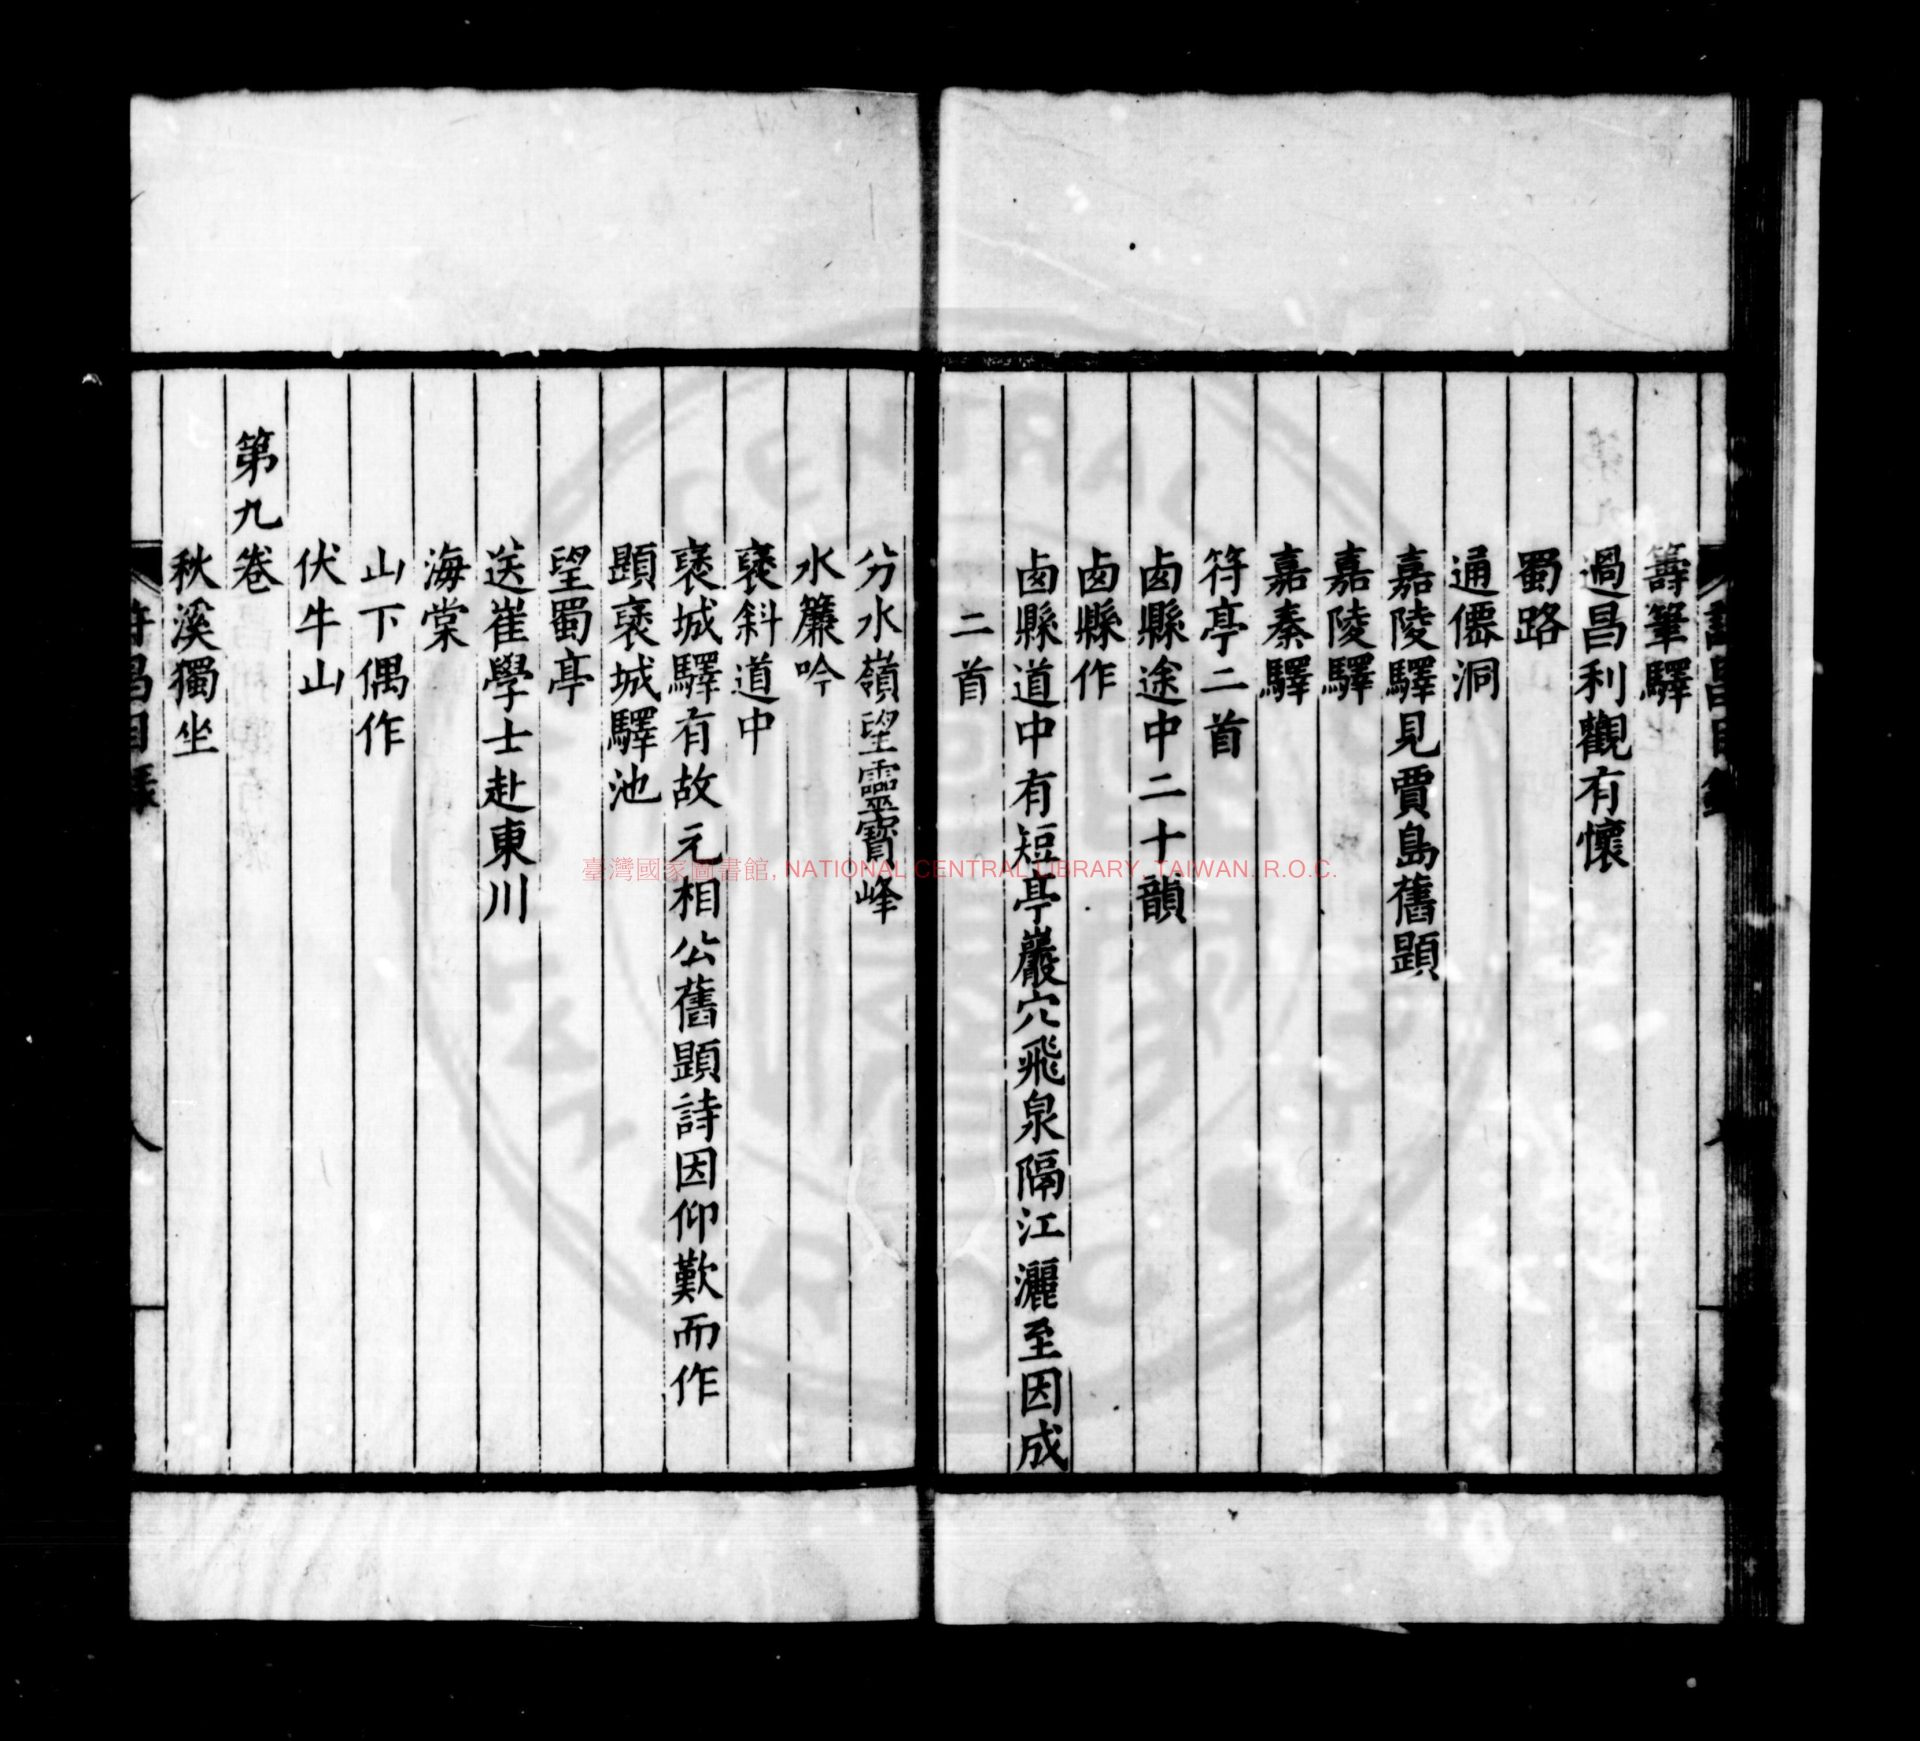 籌筆驛
過昌利觀有懷
蜀路
通僊洞
嘉陵驛見賈島舊題
嘉陵驛
嘉秦驛
符亭二首
鹵縣途中二十韻
鹵縣作
鹵縣道中有短亭巖穴飛泉隔江灑至因成
二首
分水嶺望靈寶峰
水簾吟
褒斜道中
褒城驛有故元相公舊題詩因仰歎而作
題褒城驛池
望蜀亭
送崔學士赴東川
海棠
山下偶作
伏牛山
第九卷
秋溪獨坐
八
臺灣國家圖書館, NATIONAL CENTRAL LIBRARY, TAIWAN. R.O.C.